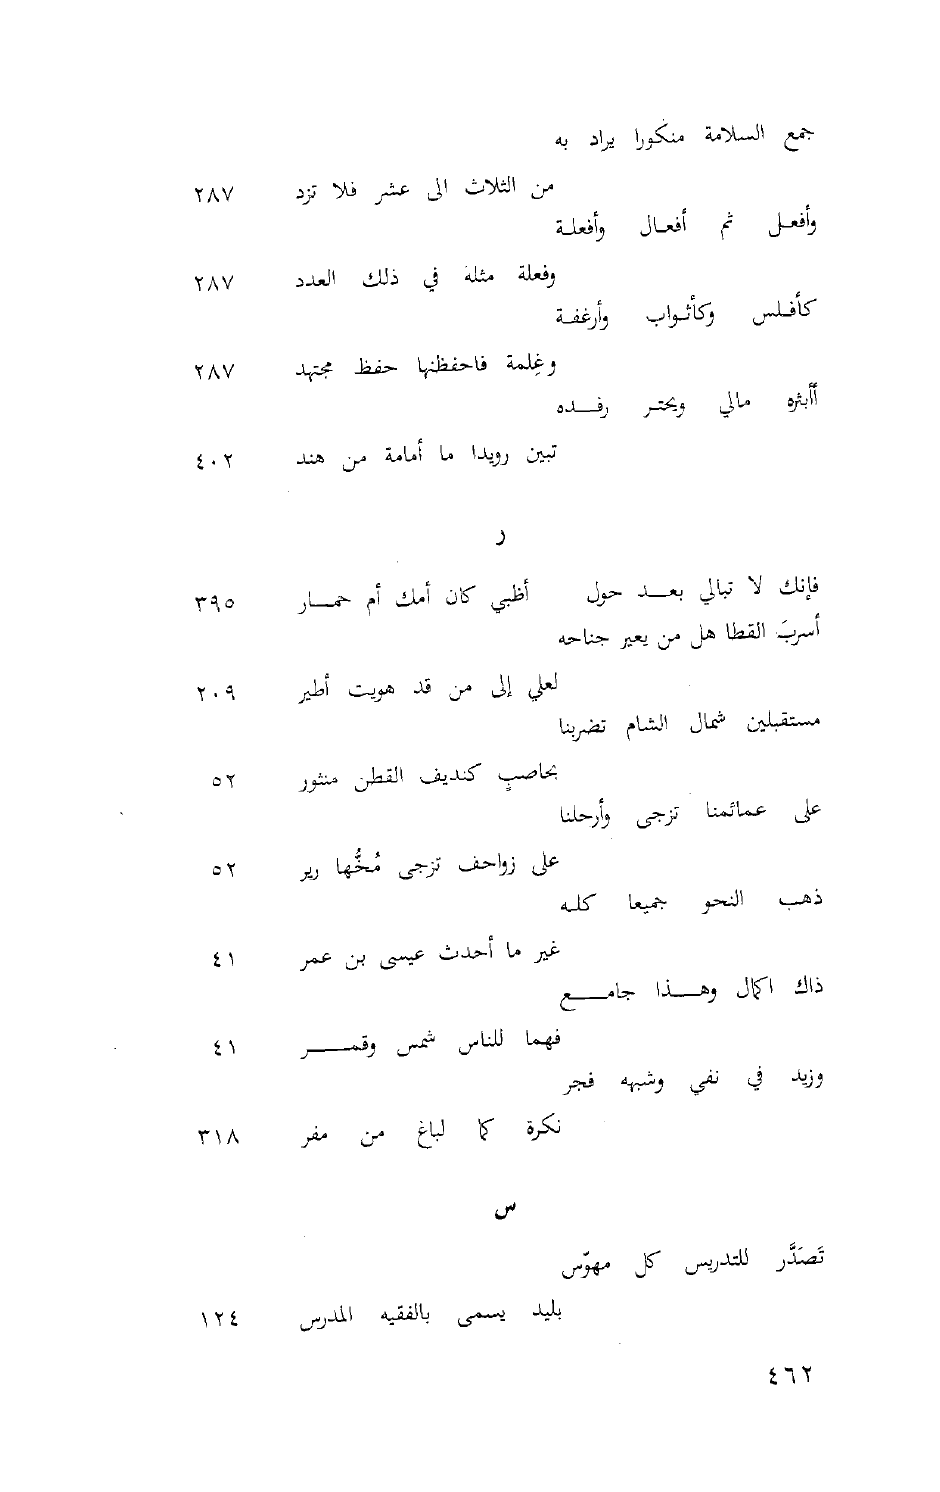 جمع السلامة منكورا يراد به
من الثلاث الى عشر فلا تزد ٢٨٧
وأفعـل ثم أفعـال وأفعلـة
وفعلة مثله في ذلك العدد ٢٨٧
كأفـلس وكأثـواب وأرغفـة
وغِلمة فاحفظنها حفظ مجتهد ٢٨٧
مالي ويحتـر رفـــده
تبين رويدا ما أمامة من هند ٤٠٢
ر
فإنك لا تبالي بعـــد حول أظبي كان أمك أم حمـــار ٣٩٥
أسربَ القطا هل من يعير جناحه
لعلي إلى من قد هويت أطير ٢٠٩
مستقبلين شمال الشام تضربنا
بحاصبٍ كنديف القطن منثور ٥٢
على عمائمنا تزجى وأرحلنا
على زواحف تزجى مُخُّها رير ٥٢
ذهب النحو جميعا كلـه
غير ما أحدث عيسى بن عمر ٤١
ذاك اكمال وهـــذا جامـــع
فهما للناس شمس وقمـــر ٤١
وزيد في نفي وشبهه فجر
نكرة كما لباغ من مفر ٣١٨
س
تَصَدَّر للتدريس كل مهوّس
بليد يسمى بالفقيه المدرس ١٢٤
٤٦٢